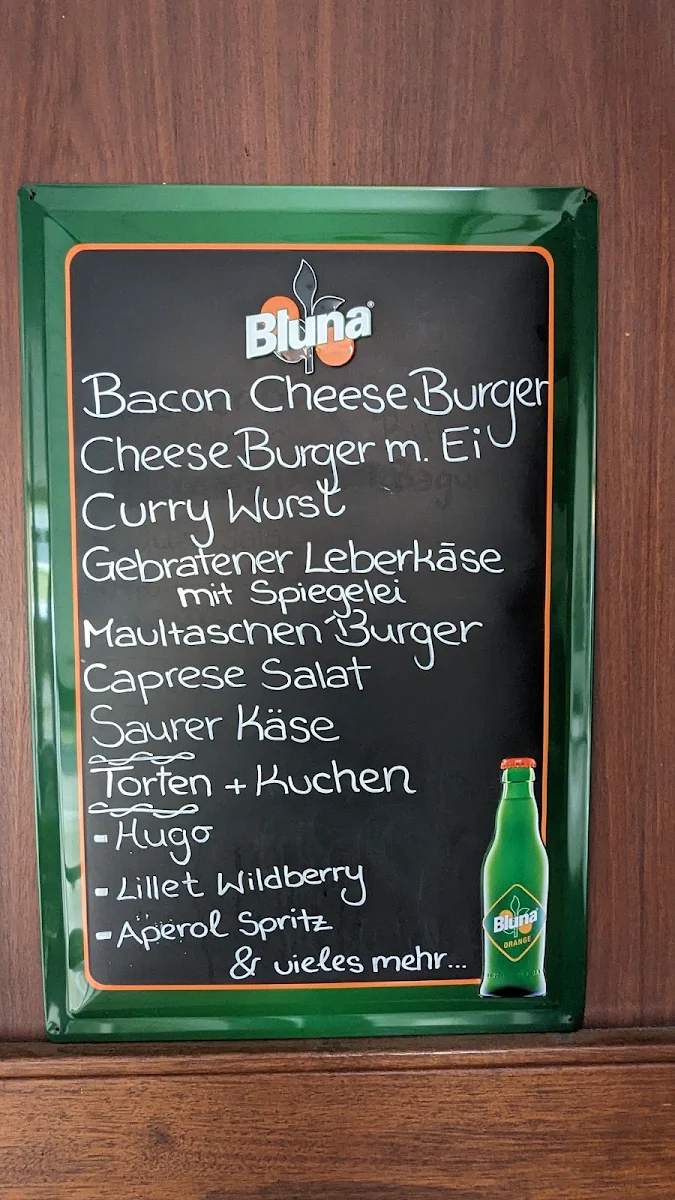 Bluna®
Bacon Cheese Burger
Cheese Burger m. Ei
Curry Wurst
Gebratener Leberkäse
mit Spiegelei
Maultaschen Burger
Caprese Salat
Saurer Käse
Torten + Kuchen
- Hugo
- Lillet Wildberry
- Aperol Spritz
& vieles mehr...
Bluna
ORANGE